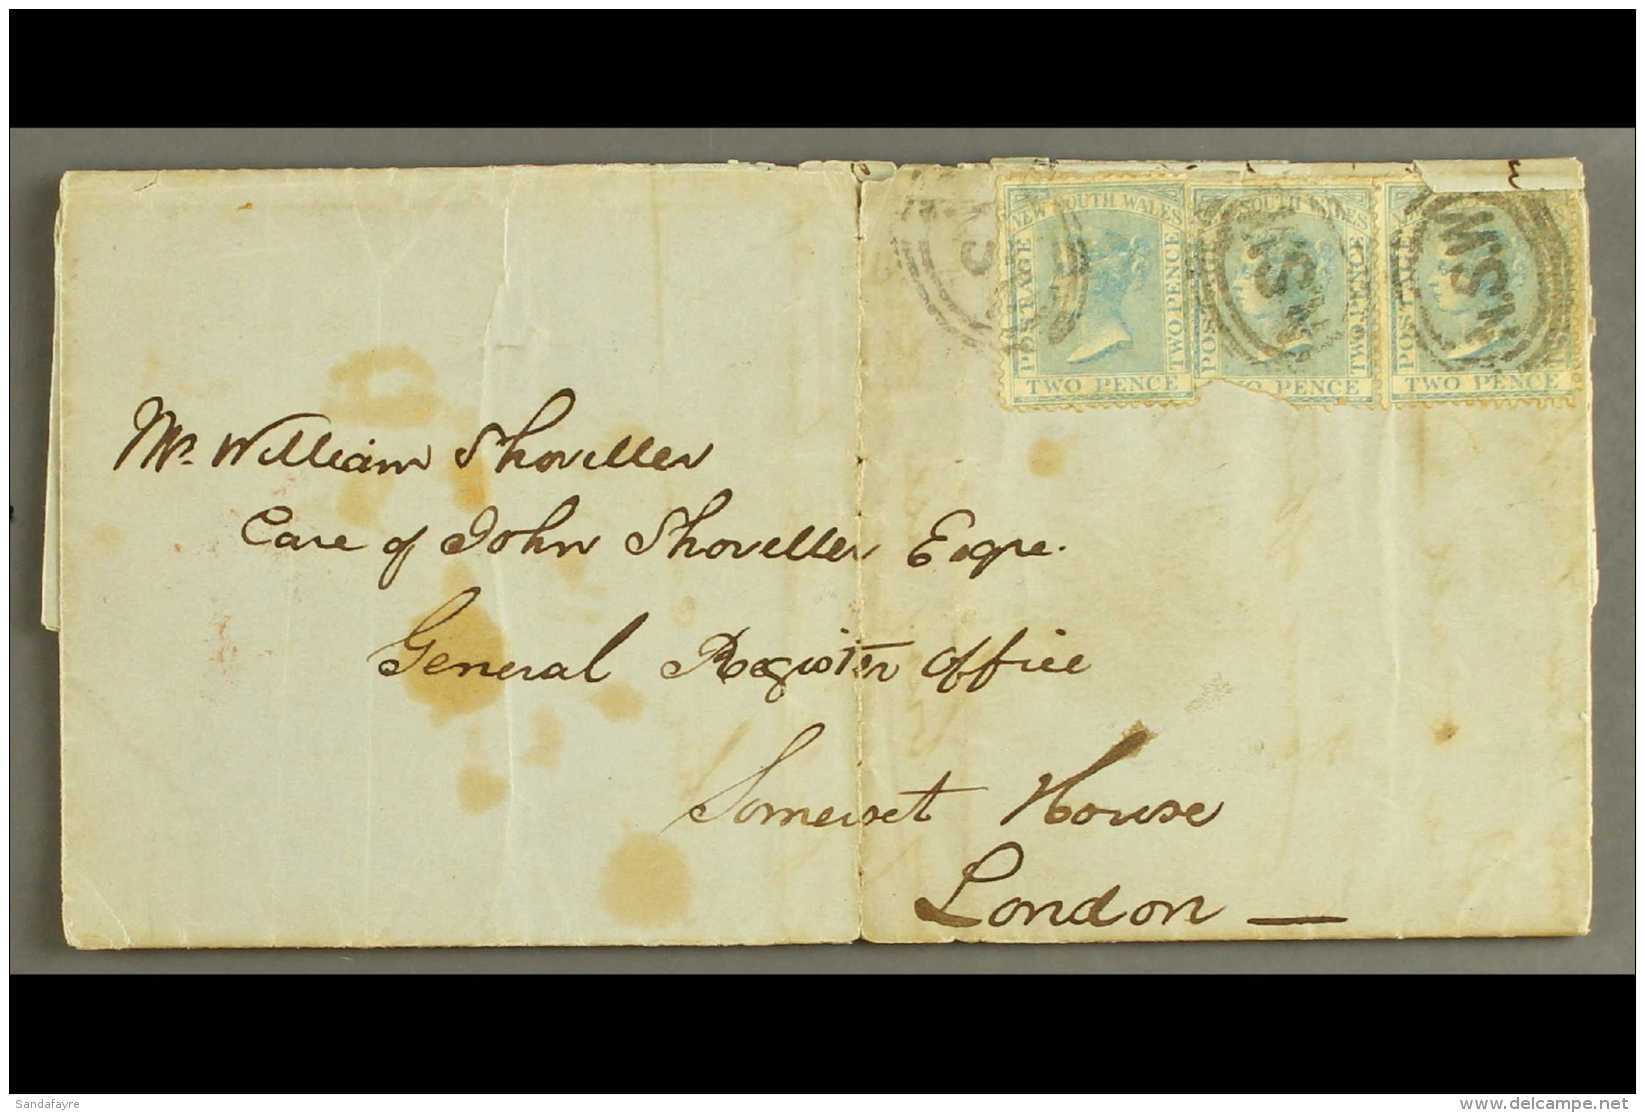 NEW SOUTH WALES
POSTAGE
TWO PENCE
TWO PENCE
SOUTH WALES
TWO PENCE
PENCE
POSTAGE
TWO PENCE
NSW
NSW
Mr. William Shoveller
Care of John Shoveller Esqre.
General Register Office
Somerset House
London —
Sandafayre
delcampe.net